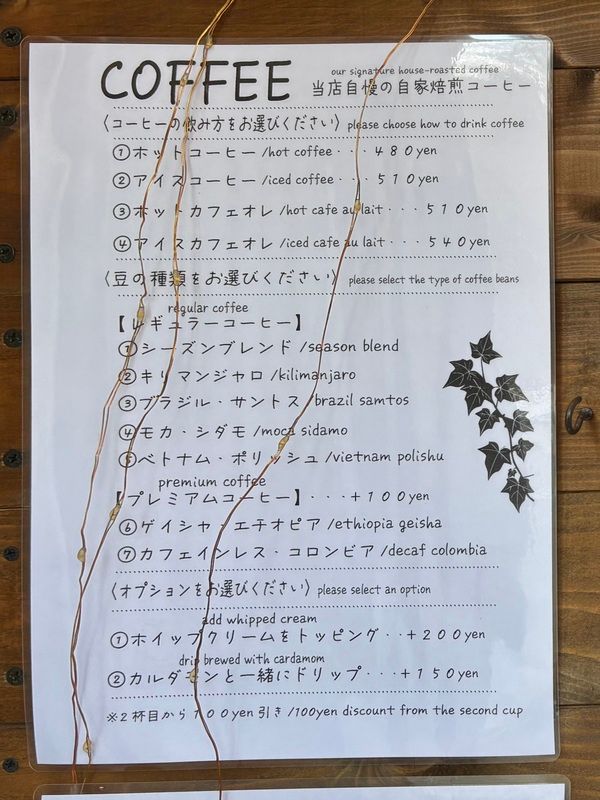 COFFEE our signature house-roasted coffee
当店自慢の自家焙煎コーヒー
〈コーヒーの飲み方をお選びください〉 please choose how to drink coffee
①ホットコーヒー/hot coffee・・・480yen
②アイスコーヒー/iced coffee・・・510yen
③ホットカフェオレ/hot cafe au lait・・・510yen
④アイスカフェオレ/iced cafe au lait・・・540yen
〈豆の種類をお選びください〉 please select the type of coffee beans
regular coffee
【レギュラーコーヒー】
①シーズンブレンド/season blend
②キリマンジャロ/kilimanjaro
③ブラジル・サントス/brazil samtos
④モカ・シダモ/moca sidamo
⑤ベトナム・ポリッシュ/vietnam polishu
premium coffee
【プレミアムコーヒー】・・・+100yen
⑥ゲイシャ・エチオピア/ethiopia geisha
⑦カフェインレス・コロンビア/decaf colombia
〈オプションをお選びください〉 please select an option
add whipped cream
①ホイップクリームをトッピング・・+200yen
drip brewed with cardamom
②カルダモンと一緒にドリップ・・・+150yen
※2杯目から100yen引き/100yen discount from the second cup